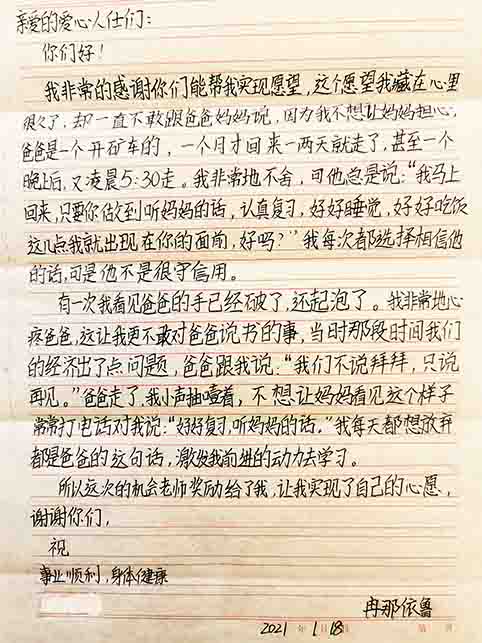 亲爱的爱心人仕们：
你们好！
我非常的感谢你们能帮我实现愿望，这个愿望我藏在心里
很久了，却一直不敢跟爸爸妈妈说，因为我不想让妈妈担心，
爸爸是一个开矿车的，一个月才回来一两天就走了，甚至一个
晚上后，又凌晨5:30走。我非常地不舍，可他总是说：“我马上
回来，只要你做到听妈妈的话，认真复习，好好睡觉，好好吃饭
这几点我就出现在你的面前，好吗？”我每次都选择相信他
的话，可是他不是很守信用。
有一次我看见爸爸的手已经破了，还起泡了。我非常地心
疼爸爸，这让我更不敢对爸爸说书的事，当时那段时间我们
的经济出了点问题，爸爸跟我说：“我们不说拜拜，只说
再见。”爸爸走了，我小声抽噎着，不想让妈妈看见这个样子
常常打电话对我说：“好好复习，听妈妈的话。”我每天都想放弃
都是爸爸的这句话，激发我前进的动力去学习。
所以这次的机会老师奖励给了我，让我实现了自己的心愿，
谢谢你们，
祝
事业顺利，身体健康
冉那依鲁
2021年1月18日